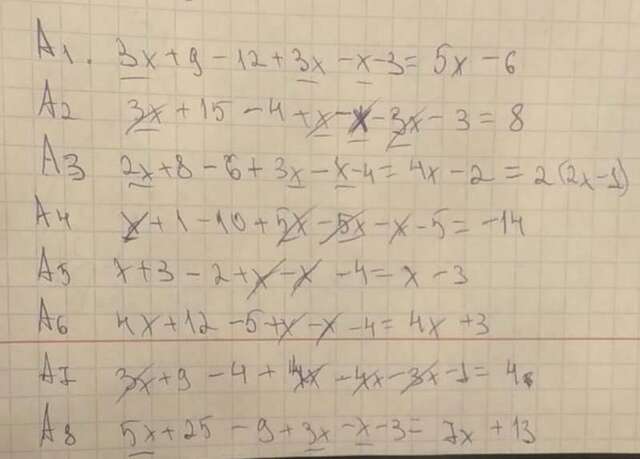 A1. 3x + 9 - 12 + 3x - x - 3 = 5x - 6
A2 3x + 15 - 4 + x - x - 3x - 3 = 8
A3 2x + 8 - 6 + 3x - x - 4 = 4x - 2 = 2(2x - 1)
A4 x + 1 - 10 + 5x - 5x - x - 5 = -14
A5 x + 3 - 2 + x - x - 4 = x - 3
A6 4x + 12 - 5 + x - x - 4 = 4x + 3
A7 3x + 9 - 4 + 4x - 4x - 3x - 1 = 4
A8 5x + 25 - 9 + 3x - x - 3 = 7x + 13